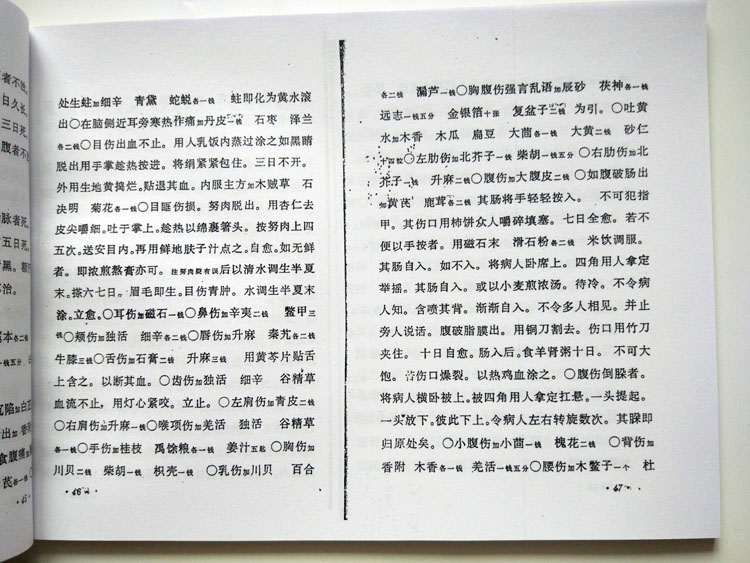 者不
日久长，
三日死
腹者不
脉者死
五日死。
不治。
本各二钱
处生蛀加细辛 青黛 蛇蜕各一钱 蛀即化为黄水滚
出○在脑侧近耳旁寒热作痛加丹皮一钱 石枣 泽兰
各二钱○目伤出血不止。用人乳饭内蒸过涂之如黑睛
脱出用手掌趁热按进。将绢紧紧包住。三日不开。
外用生地黄捣烂。贴退其血。内服主方加木贼草 石
决明 菊花各一钱○目眶伤损。努肉脱出。用杏仁去
皮尖嚼细。吐于掌上。趁热以绵裹箸头。按努肉上四
五次。送安目内。再用鲜地肤子汁点之。自愈。如无鲜
者。即浓煎熬膏亦可。 后以清水调生半夏
末。搽六七日。眉毛即生。目伤青肿。水调生半夏末
涂。立愈。○耳伤加磁石一钱○鼻伤加辛夷二钱 鳖甲三钱
○颊伤加独活 细辛各二钱○唇伤加升麻 秦艽各二钱
牛膝三钱○舌伤加石膏二钱 升麻三钱 用黄芩片贴舌
上含之。以断其血。○齿伤加独活 细辛 谷精草
血流不止，用灯心紧咬。立止。○左肩伤加青皮二钱
○右肩伤加升麻一钱○喉项伤加羌活 独活 谷精草
各一钱○手伤加桂枝 禹馀粮各一钱 姜汁五匙○胸伤加
川贝二钱 柴胡一钱 枳壳一钱 ○乳伤加川贝 百合
·46·
各二钱 漏芦一钱○胸腹伤强言乱语加辰砂 茯神各一钱
远志一钱五分 金银箔十张 复盆子三钱 为引。○吐黄
水加木香 木瓜 扁豆 大茴各一钱 大黄二钱 砂仁
十四粒○左肋伤加北芥子一钱 柴胡一钱五分○右肋伤加北
芥子一钱 升麻二钱○腹伤加大腹皮二钱○如腹破肠出
加黄芪 鹿茸各二钱 其肠将手轻轻按入。 不可犯指
甲。其伤口用柿饼众人嚼碎填塞。七日全愈。若不
便以手按者。用磁石末 滑石粉各二钱 米饮调服。
其肠自入。如不入。将病人卧席上。四角用人拿定
举摇。其肠自入。或以小麦煎浓汤。待冷。不令病
人知。含喷其背。渐渐自入。不令多人相见。并止
旁人说话。腹破脂膜出。用铜刀割去。伤口用竹刀
夹住。十日自愈。肠入后。食羊肾粥十日。不可大
饱。 伤口燥裂。以热鸡血涂之。○腹伤倒躲者。
将病人横卧被上。被四角用人拿定扛悬。一头提起。
一头放下。彼此下上。令病人左右转旋数次。其躲即
归原处矣。○小腹伤加小茴一钱 槐花二钱 ○背伤加
香附 木香各一钱 羌活一钱五分○腰伤加木鳖子一个 杜
·47·